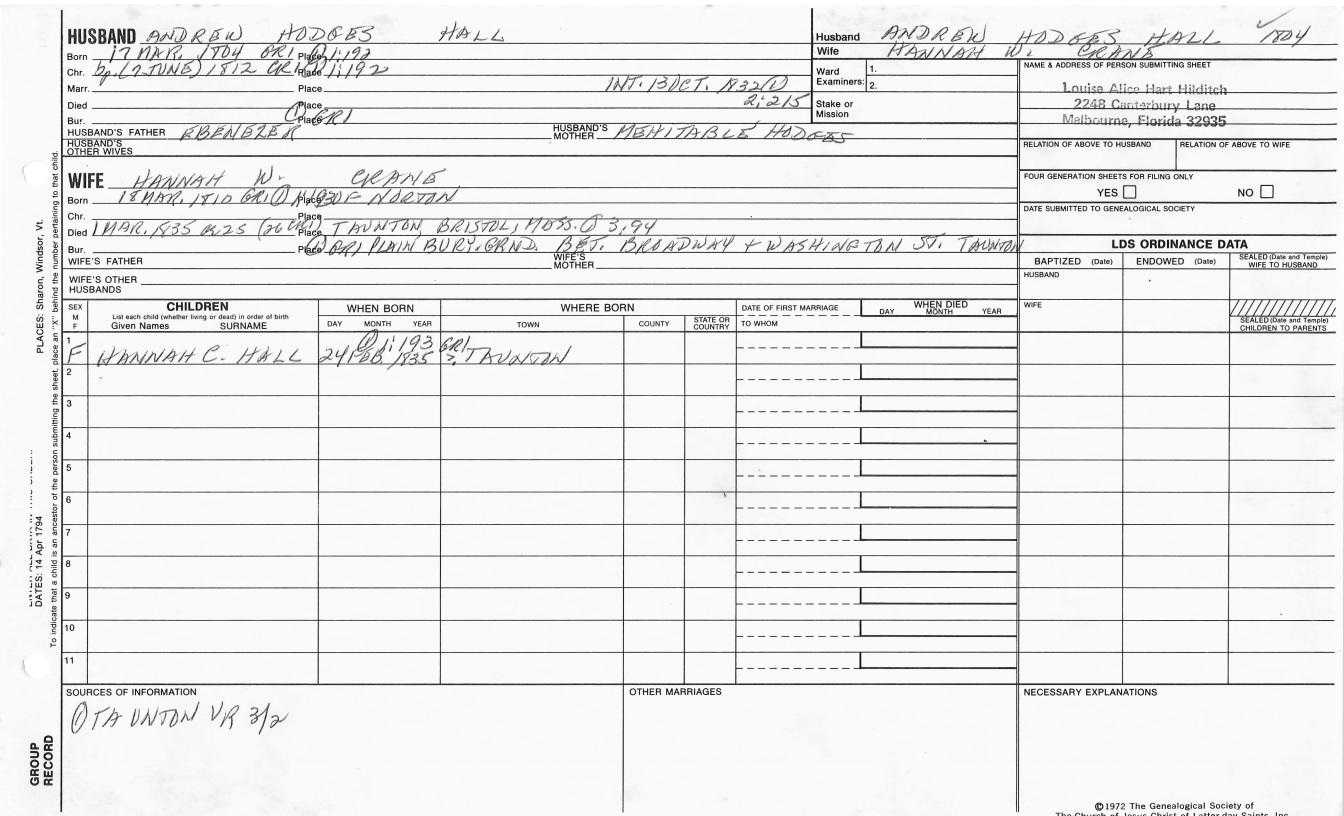 HUSBAND ANDREW HODGES HALL
Born 17 MAR. 1804 GR1 Place ① 1:192
Chr. bp. (7 JUNE) 1812 CR1 Place ① 1:192
Marr. Place INT. 13 OCT. 1832 ①
2:215
Died Place
Bur. Place ① GR1
HUSBAND'S FATHER EBENEZER HUSBAND'S MOTHER MEHITABLE HODGES
HUSBAND'S OTHER WIVES
Husband ANDREW HODGES HALL 1804
Wife HANNAH W. CRANE
Ward Examiners: 1.
2.
Stake or Mission
NAME & ADDRESS OF PERSON SUBMITTING SHEET
Louise Alice Hart Hilditch
2248 Canterbury Lane
Melbourne, Florida 32935
RELATION OF ABOVE TO HUSBAND RELATION OF ABOVE TO WIFE
FOUR GENERATION SHEETS FOR FILING ONLY
YES NO
DATE SUBMITTED TO GENEALOGICAL SOCIETY
WIFE HANNAH W. CRANE
Born 18 MAR. 1810 GR1 ① Place OF NORTON
Chr. Place
Died 1 MAR. 1835 Place TAUNTON, BRISTOL, MASS. ① 3:94
Bur. Place ① GR1 PLAIN BURY. GRND. BET. BROADWAY + WASHINGTON ST. TAUNTON
WIFE'S FATHER WIFE'S MOTHER
WIFE'S OTHER HUSBANDS
LDS ORDINANCE DATA
BAPTIZED (Date) ENDOWED (Date) SEALED (Date and Temple) WIFE TO HUSBAND
HUSBAND
WIFE
SEALED (Date and Temple) CHILDREN TO PARENTS
SEX M F
CHILDREN
List each child (whether living or dead) in order of birth
Given Names SURNAME
WHEN BORN
DAY MONTH YEAR
WHERE BORN
TOWN COUNTY STATE OR COUNTRY
DATE OF FIRST MARRIAGE
TO WHOM
WHEN DIED
DAY MONTH YEAR
1 ① 1:193 GR1
F HANNAH C. HALL 24 FEB 1835 ?. TAUNTON
2
3
4
5
6
7
8
9
10
11
SOURCES OF INFORMATION
① TAUNTON VR
OTHER MARRIAGES
NECESSARY EXPLANATIONS
PLACES: Sharon, Windsor, Vt.
DATES: 14 Apr 1794
To indicate that a child is an ancestor of the person submitting the sheet, place an "X" behind the number pertaining to that child.
GROUP RECORD
©1972 The Genealogical Society of
The Church of Jesus Christ of Latter-day Saints, Inc.